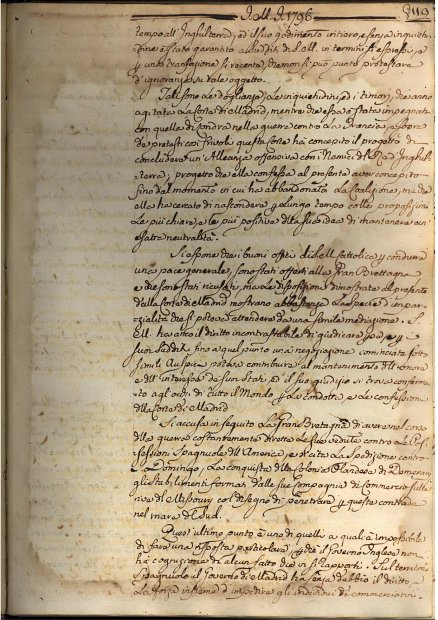 J. M. J. 1796
119
tempo all' Inghilterra, ed il suo godimento intiero, e senza inquietu-
dine è stato garantito a' sudditi di S. M. in termini sì espressi, e
p una transazione sì recente, che non si può punto protestare
d'ignoranza su tale oggetto.
Tali sono le doglianze, le inquietudini, ed i timori, che hanno
agitata la Corte di Madrid, mentre che essa è stata impegnata
con quella di Londra nella guerra contro la Francia, e sopra
de' pretesti così frivoli questa Corte hà concepito il progetto di
concludere un' Alleanza offensiva con i Nemici del Rè d'Inghil-
terra, progetto che ella confessa al presente aver concepito
fino dal momento in cui hà abbandonata la Coalizione, mà che
ella hà cercato di nascondere p lungo tempo colle proposizioni
le più chiare, e le più positive della sua idea di mantenere un'
esatta neutralità.
Si espone che i buoni offizj di S. M. Cattolica p condurre
una pace generale, sono stati offerti alla Gran Brettagna
e che sono stati ricusati, mà le disposizioni dimostrate al presente
dalla Corte di Madrid mostrano abbastanza la specie d'impar-
zialità che si poteva attendere da una simile mediazione. S.
M. hà atteso il diritto incontrastabile di giudicare p se, e p
suoi Sudditi fino a qual punto una negoziazione cominciata sotto
simili Auspicj potesse contribuire al mantenimento dell'onore
e dell' interesse de' suoi Stati, ed il suo giudizio si trova conferma-
to agl' occhi di tutto il Mondo p la condotta, e le confessioni
della Corte di Madrid
Si accusa in seguito la Gran Bretagna di avere nel corso
della guerra costantemente dirette le sue vedute contro le Pos-
sessioni Spagnuole dell' America, e si cita la Spedizione contro
S. Domingo, la conquista della Colonia Olandese di Demerari
gli stabilimenti formati dalle sue Compagnie di commercio sulle
rive del Missoury col disegno di penetrare p questa contrada
nel mare del Sud.
Quest' ultimo punto è uno di quelli a quali è impossibile
di fare una risposta particolare, p che il Governo Inglese non
hà cognizione di alcun fatto che vi si rapporti. Sul territorio
Spagnuolo il Governo di Madrid hà senza dubbio il diritto e
la forza insieme d'impedire gli individui di commerciarvi.